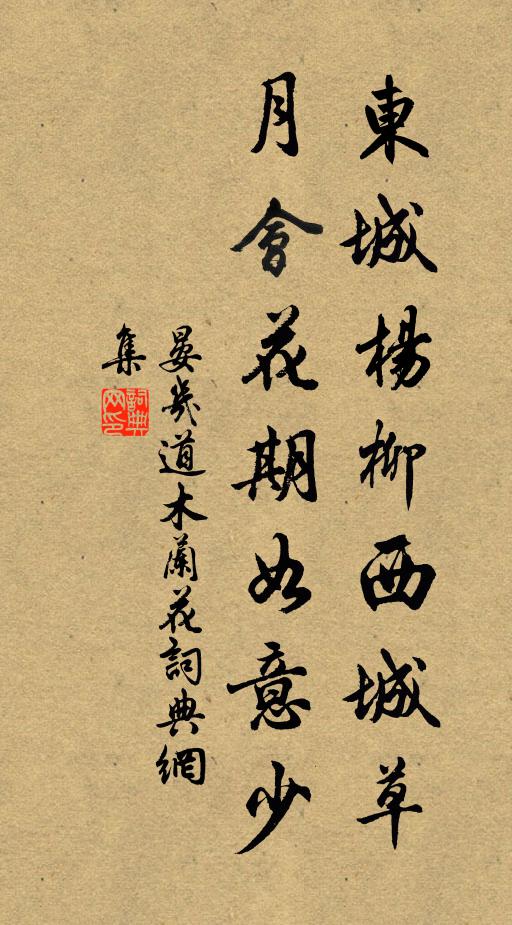 東城楊柳西城草
月會花期如意少
晏幾道木蘭花詞典網
集
詞典
网印